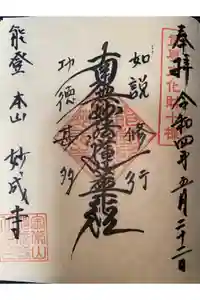 奉拝 令和四年五月二十二日
如説修行
南無妙法蓮華経
功徳甚多
能登 本山 妙成寺